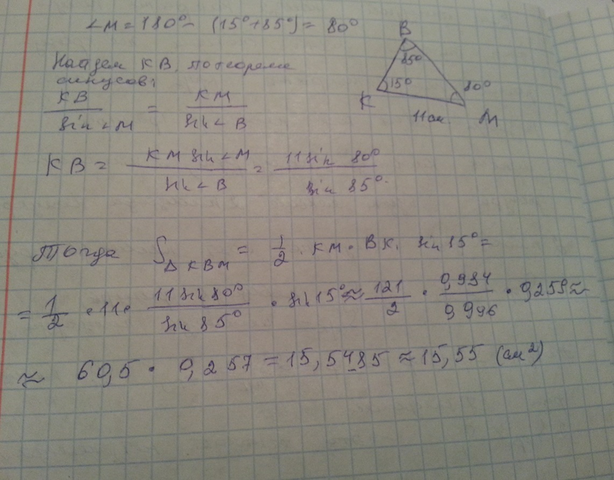 ∠M = 180° - (15° + 85°) = 80°
Найдем KB по теореме
синусов:
KB / sin ∠M = KM / sin ∠B
KB = KM sin ∠M / sin ∠B = 11 sin 80° / sin 85°
Тогда S △KBM = 1/2 · KM · BK · sin 15° =
= 1/2 · 11 · 11 sin 80° / sin 85° · sin 15° ≈ 121/2 · 0,984 / 0,996 · 0,259 ≈
≈ 60,5 · 0,257 = 15,5485 ≈ 15,55 (см²)
B
85°
K
15°
80°
11 см
M